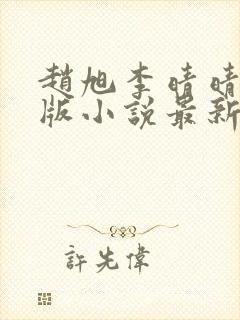 趙旭李晴晴
版小說最新
許先偉